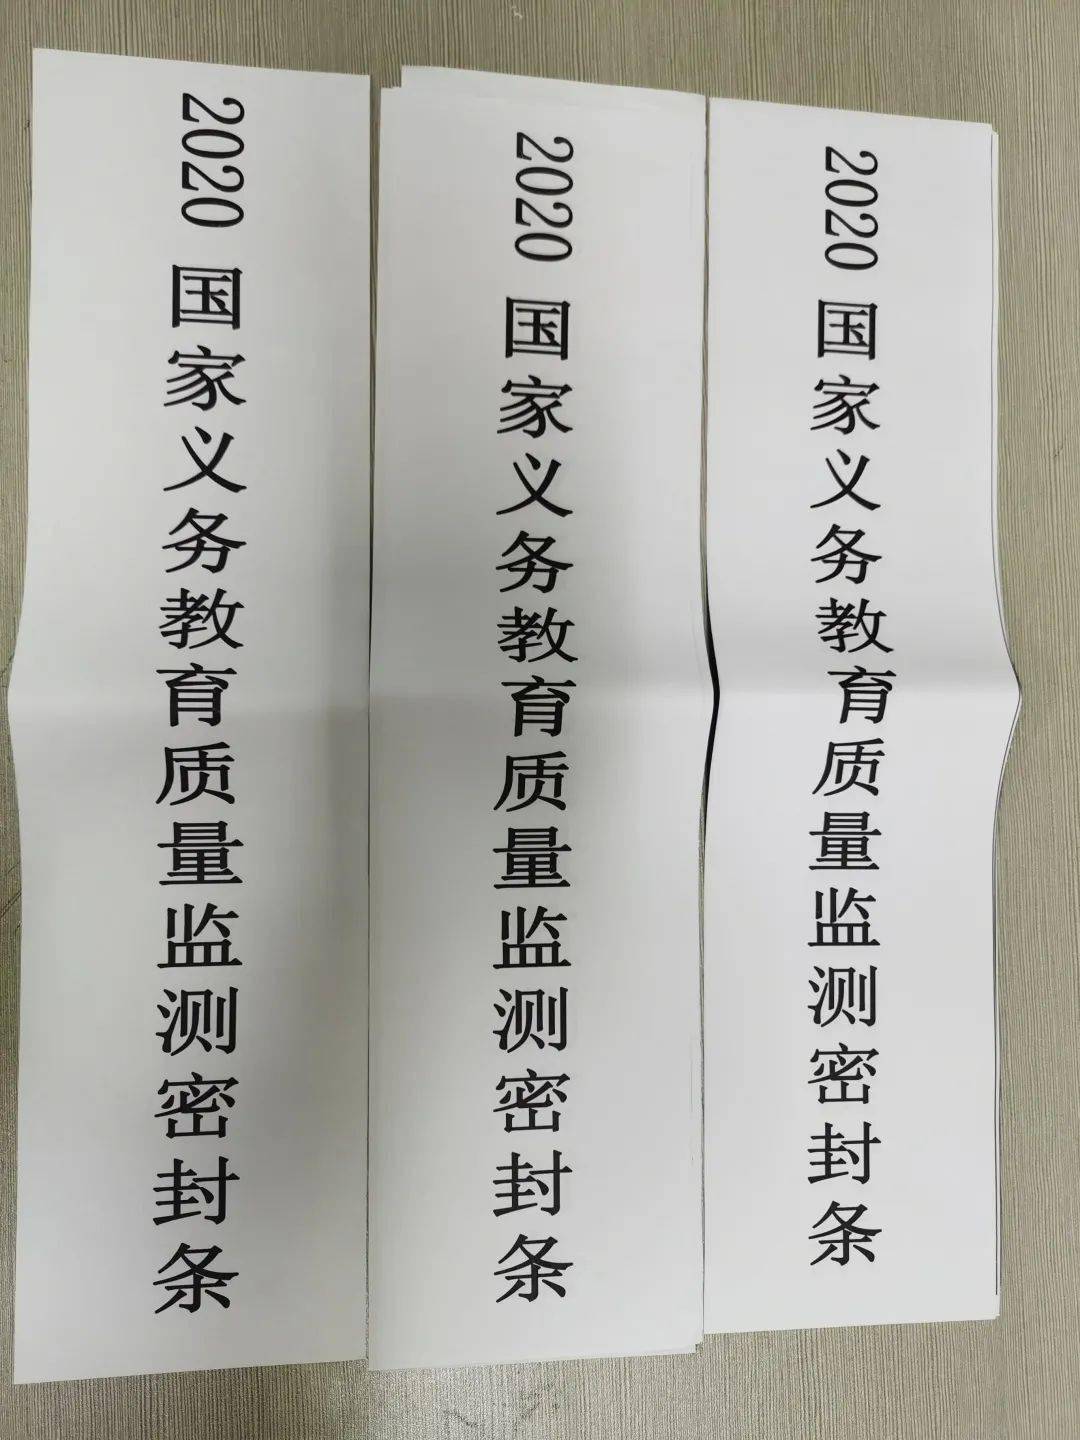 2020 国家义务教育质量监测密封条
2020 国家义务教育质量监测密封条
2020 国家义务教育质量监测密封条